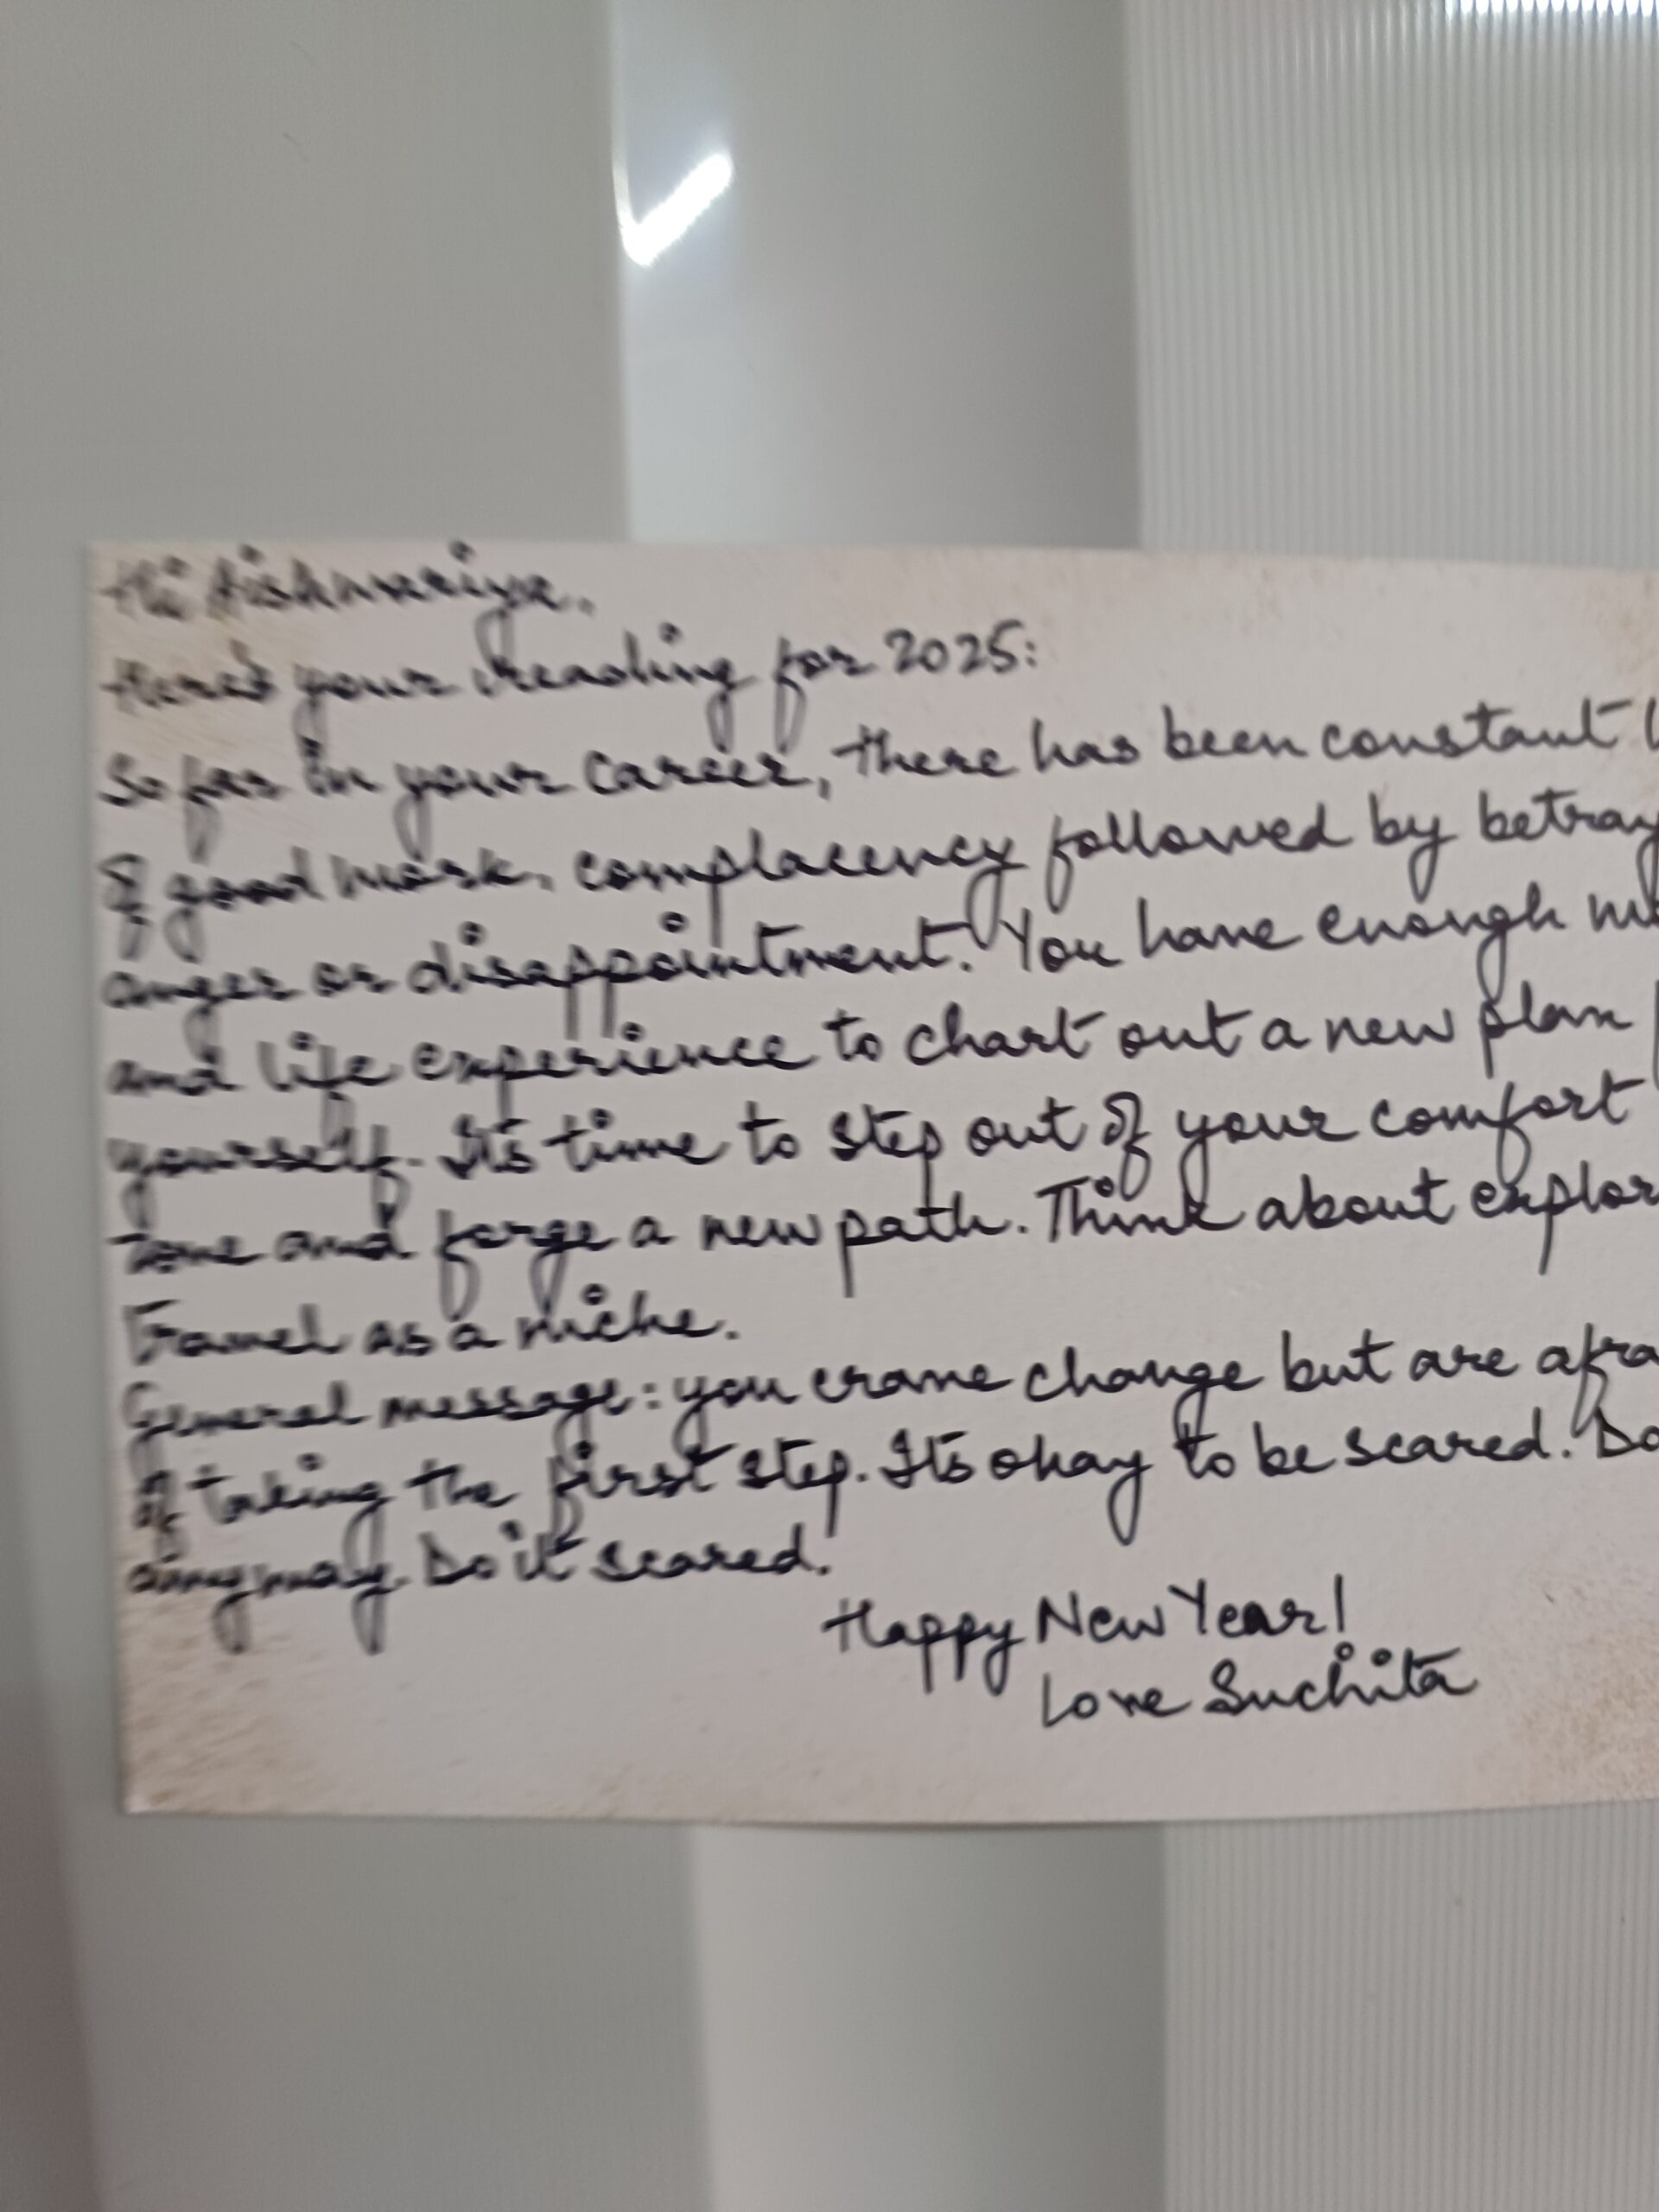 Hi Aishwariya,
Here's your reading for 2025:
So far in your career, there has been constant
of good work, complacency followed by betray
anger or disappointment. You have enough
and life experience to chart out a new plan
yourself. Its time to step out of your comfort
zone and forge a new path. Think about explor
Travel as a niche.
General message: you crave change but are afra
of taking the first step. Its okay to be scared. Do
anyway. Do it scared.
Happy New Year!
Love Suchita